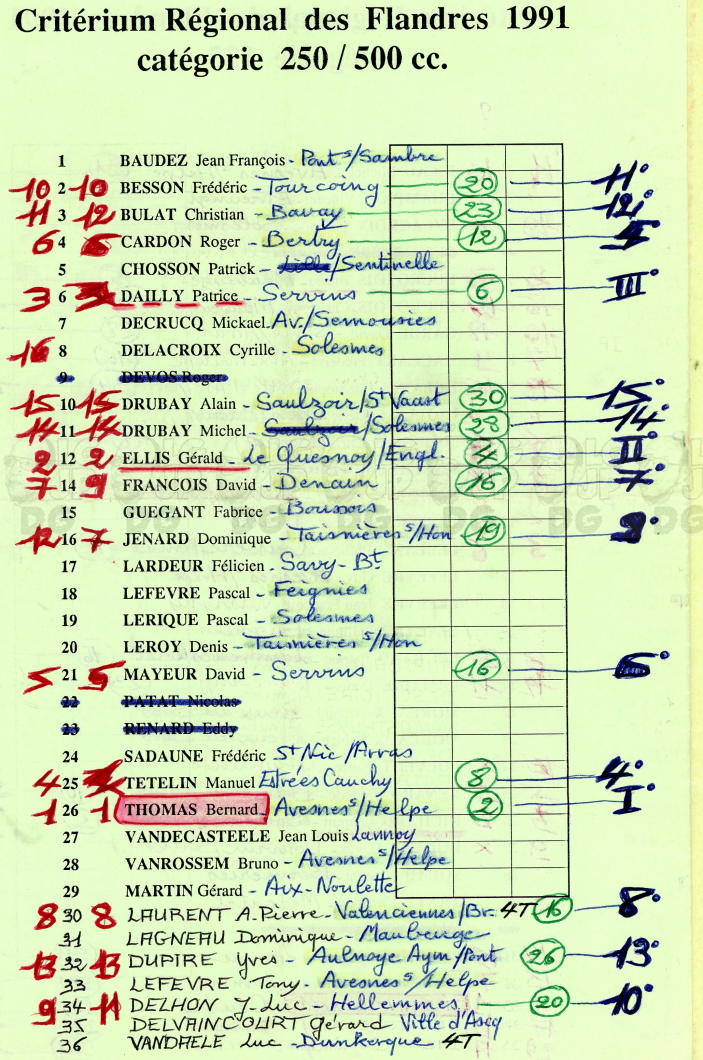 Critérium Régional des Flandres 1991
catégorie 250 / 500 cc.
1 BAUDEZ Jean François - Pont s/Sambre
10 2 10 BESSON Frédéric - Tourcoing 20 11°
11 3 12 BULAT Christian - Bavay 23 12°
6 4 6 CARDON Roger - Bertry 12 5°
5 CHOSSON Patrick - Lille/Sentinelle
3 6 3 DAILLY Patrice - Servins 6 III°
7 DECRUCQ Mickael. Av./Semousies
16 8 DELACROIX Cyrille - Solesmes
9 DEVOS Roger
15 10 15 DRUBAY Alain - Saulzoir/St Vaast 30 15°
14 11 14 DRUBAY Michel - Saulzoir/Solesmes 28 14°
2 12 2 ELLIS Gérald - Le Quesnoy/Engl. 4 II°
7 14 9 FRANCOIS David - Denain 16 7°
15 GUEGANT Fabrice - Boussois
12 16 7 JENARD Dominique - Taisnières s/Hon 19 9°
17 LARDEUR Félicien - Savy - Bt
18 LEFEVRE Pascal - Feignies
19 LERIQUE Pascal - Solesmes
20 LEROY Denis - Taisnières s/Hon
5 21 5 MAYEUR David - Servins 16 6°
22 PATAT Nicolas
23 RENARD Eddy
24 SADAUNE Frédéric St Nic /Arras
4 25 4 TETELIN Manuel Estrées Cauchy 8 4°
1 26 1 THOMAS Bernard - Avesnes s/Helpe 2 I°
27 VANDECASTEELE Jean Louis Lannoy
28 VANROSSEM Bruno - Avesnes s/Helpe
29 MARTIN Gérard - Aix-Noulette
8 30 8 LAURENT A.Pierre - Valenciennes/Br. 4T 16 8°
31 LAGNEAU Dominique - Maubeuge
13 32 13 DUPIRE Yves - Aulnoye Aym/Pont 26 13°
33 LEFEVRE Tony - Avesnes s/Helpe
9 34 11 DELHON J-Luc - Hellemmes 20 10°
35 DELVAINCOURT Gérard Ville d'Ascq
36 VANDAELE Luc - Dunkerque 4T